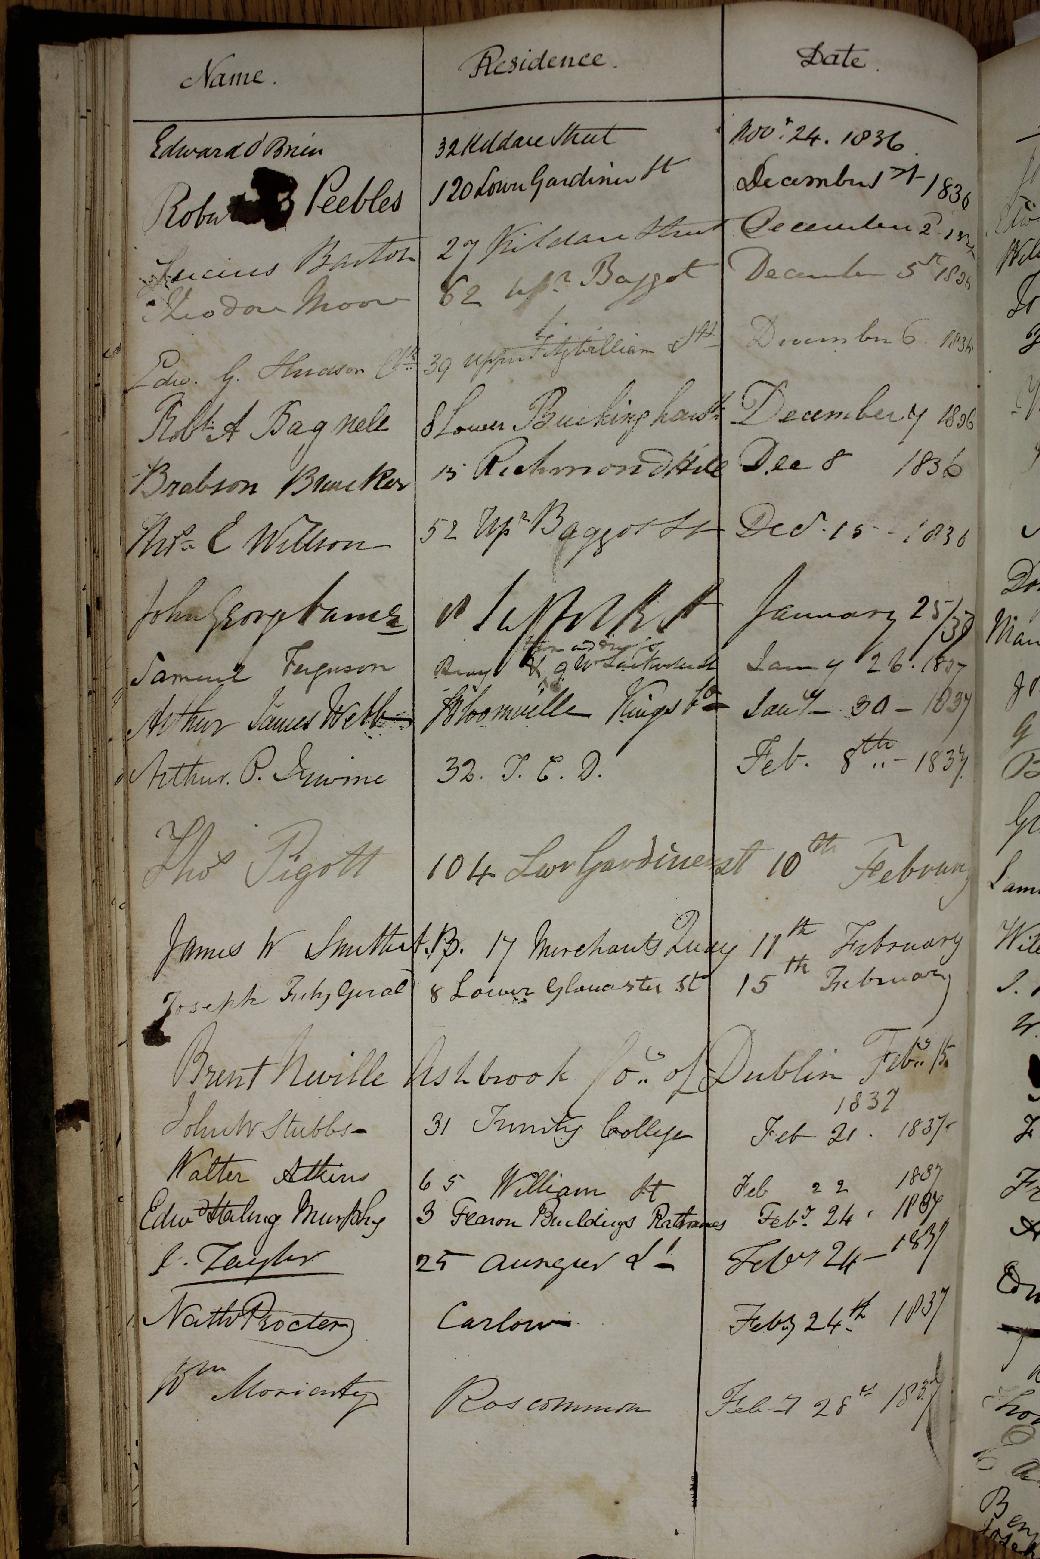 Name. Residence. Date.
Edward O'Brien 32 Kildare Street Novr. 24. 1836.
Robert Peebles 120 Lower Gardiner St December 1st 1836
Lucius Barton 27 Kildare Street December 2.
Theodore Moore 62 Upr. Baggot December 5th 1836
Edw. G. Hudson 39 Upper Fitzwilliam St December 6 1836
Robt. A Bagnell 8 Lower Buckingham St December 7 1836
Brabson Buncker 15 Richmond Hill Dec 8 1836
Thos. C Willson 52 Upr Baggot St Decr. 15 - 1836
John George January 25/37
Samuel Ferguson Jany 26. 1837
Arthur James Webb Bloomville Kings Co Jany - 30 - 1837
Arthur. P. Irwine 32. T. C. D. Feb. 8th - 1837
Thos Pigott 104 Lwr Gardiner st 10th February
James W Smith A.B. 17 Merchants Quay 11th February
Joseph Fitz Gerald 8 Lower Gloucester St 15th February
Brent Neville Ashbrook Co. of Dublin Feby. 15
1837
John W Stubbs - 31 Trinity College Feb 21. 1837
Walter Atkins 65 William St Feb 22 1837
Edwd Staling Murphy 3 Fearon Buildings Rathmines Feby. 24. 1837
J. Taylor 25 Aungier St Feby 24 - 1837
Nathl Procter Carlow. Feby 24th. 1837
Wm Moriarty Roscommon Feby 28 1837